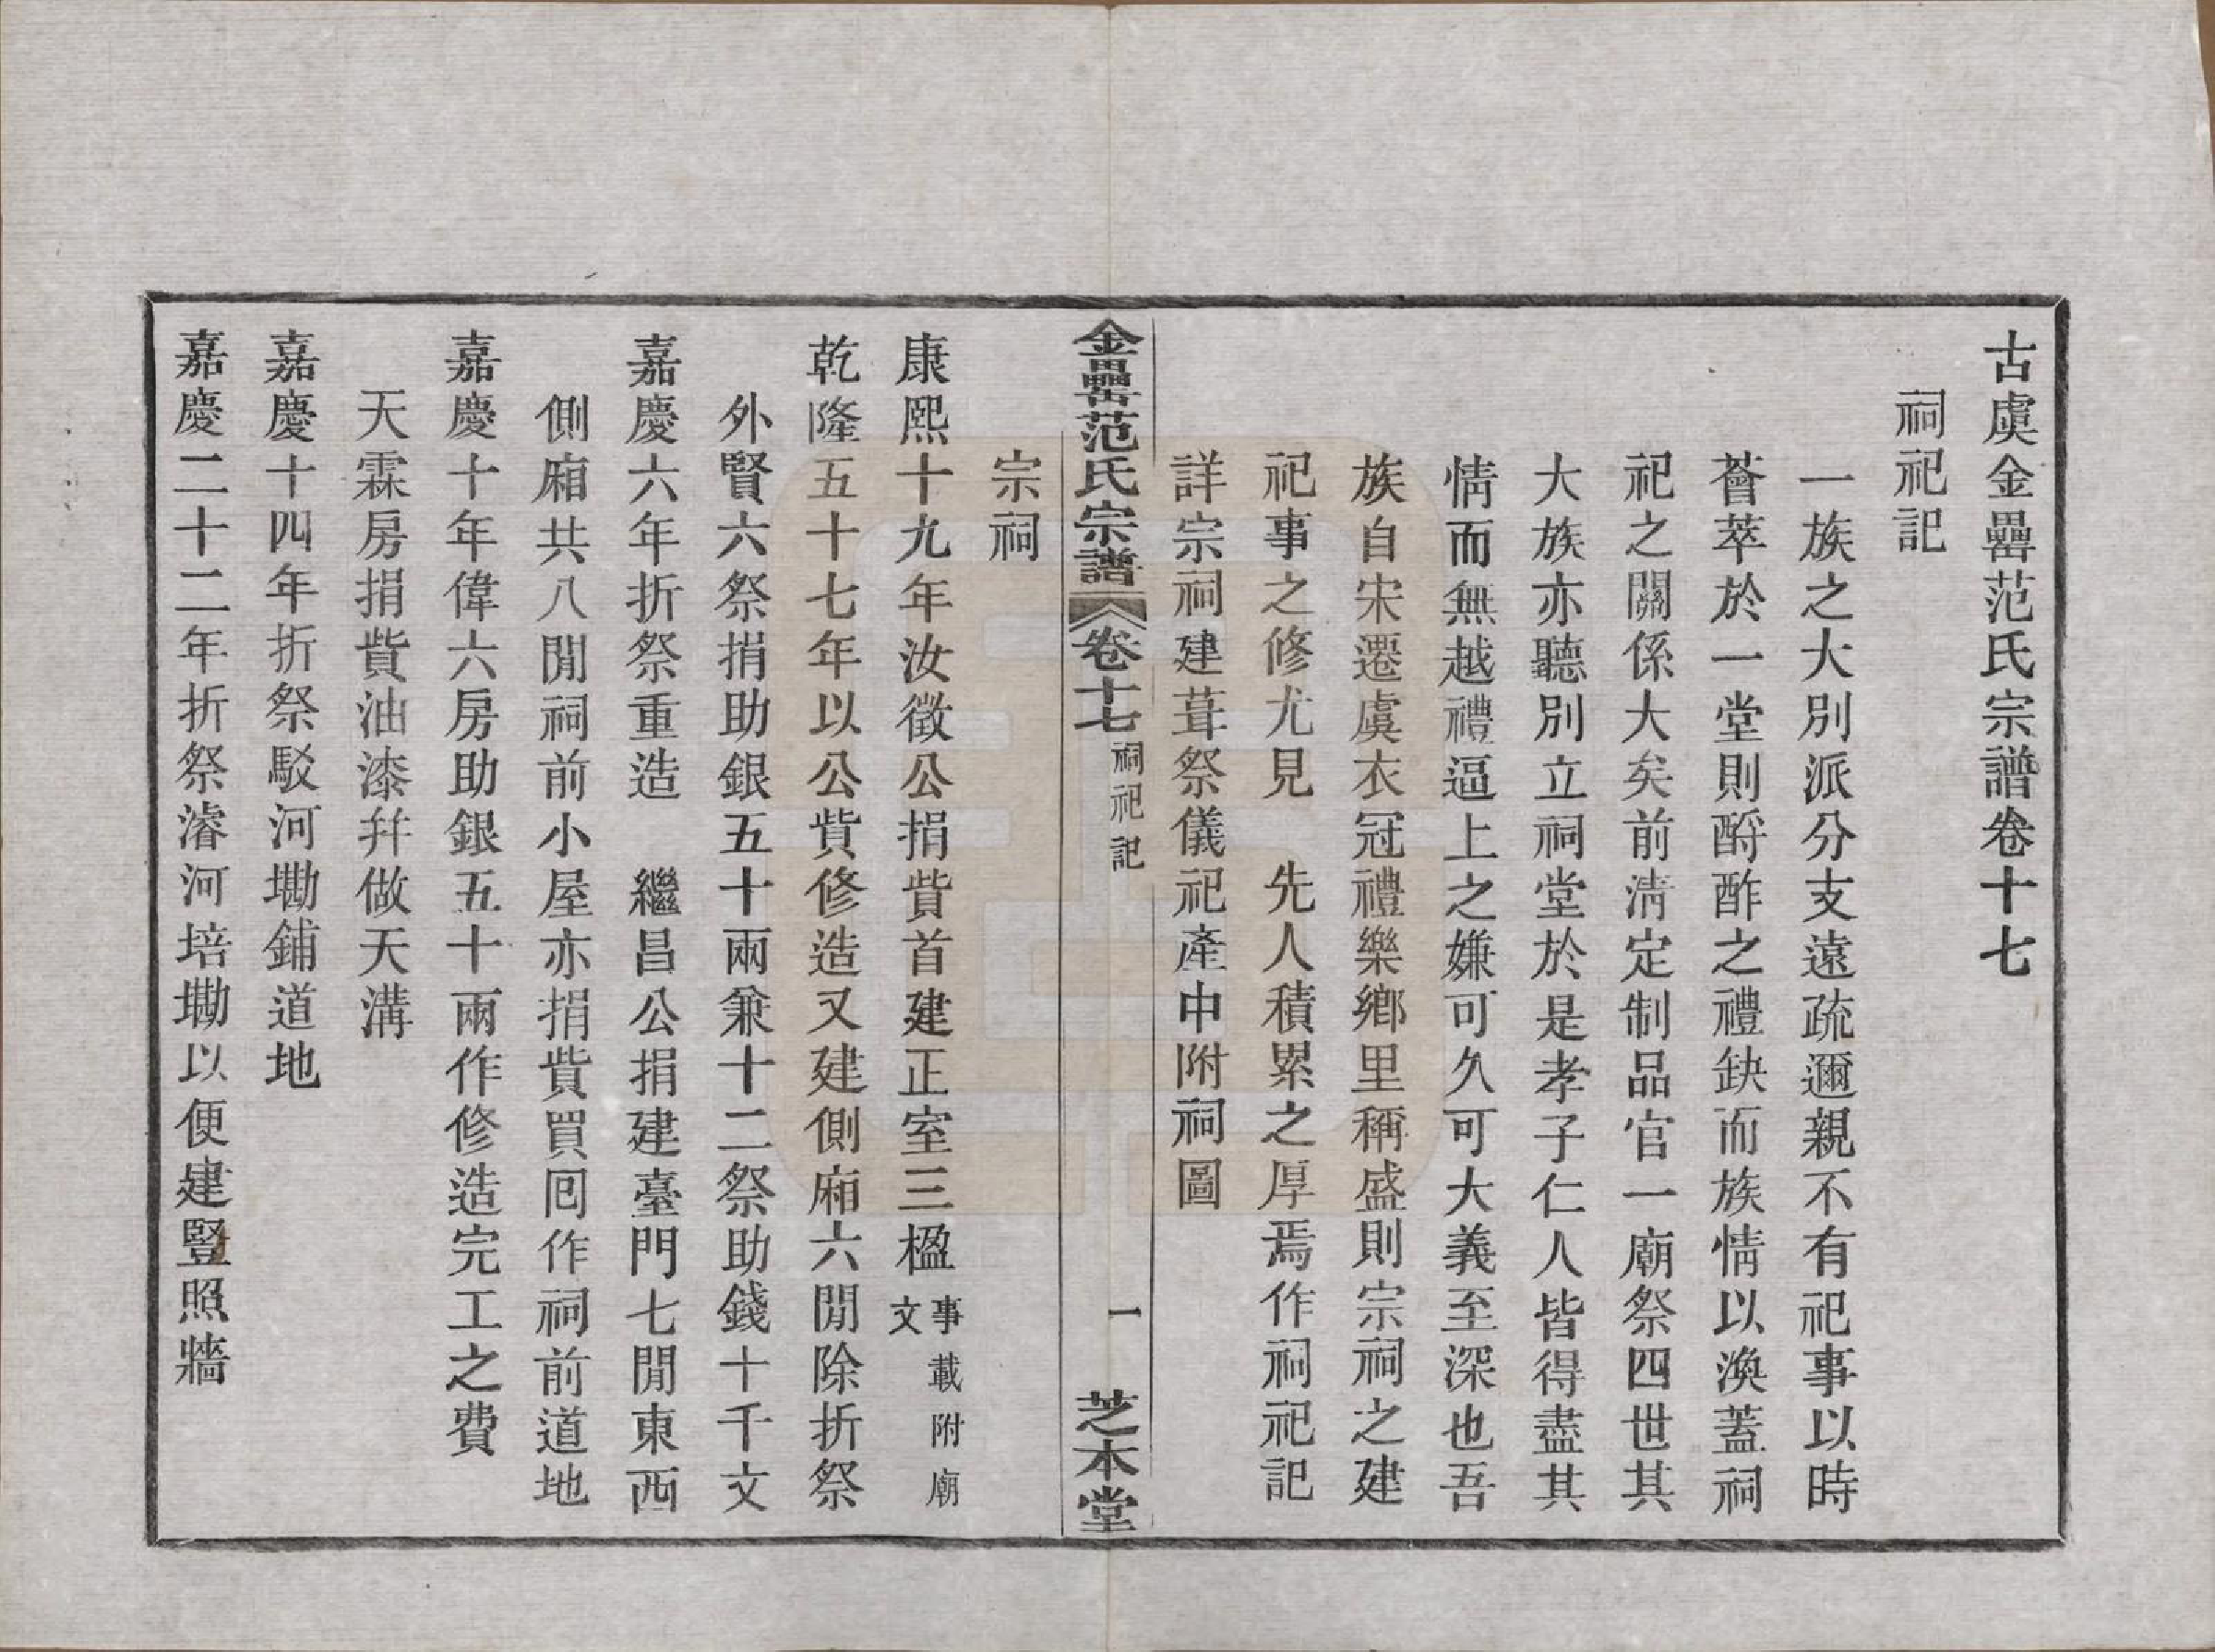 古虞金罍范氏宗譜卷十七
祠祀記
一族之大別派分支遠疏邇親不有祀事以時
薈萃於一堂則酹酢之禮缺而族情以渙蓋祠
祀之關係大矣前清定制品官一廟祭四世其
大族亦聽別立祠堂於是孝子仁人皆得盡其
情而無越禮逼上之嫌可久可大義至深也吾
族自宋遷虞衣冠禮樂鄉里稱盛則宗祠之建
祀事之修尤見　先人積累之厚焉作祠祀記
詳宗祠建葺祭儀祀產中附祠圖
金罍范氏宗譜　卷十七　祠祀記　一　芝本堂
宗祠
康熙十九年汝徵公捐貲首建正室三楹事載附廟文
乾隆五十七年以公貲修造又建側廂六閒除折祭
外賢六祭捐助銀五十兩兼十二祭助錢十千文
嘉慶六年折祭重造　繼昌公捐建臺門七閒東西
側廂共八閒祠前小屋亦捐貲買囘作祠前道地
嘉慶十年偉六房助銀五十兩作修造完工之費
天霖房捐貲油漆幷做天溝
嘉慶十四年折祭駁河磡鋪道地
嘉慶二十二年折祭濬河培磡以便建豎照牆